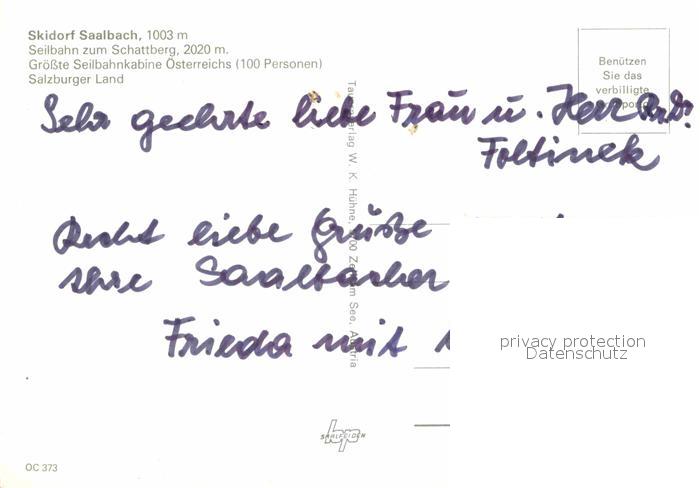 Skidorf Saalbach, 1003 m
Seilbahn zum Schattberg, 2020 m.
Größte Seilbahnkabine Österreichs (100 Personen)
Salzburger Land
Benützen
Sie das
verbilligte
Sehr geehrte liebe Frau u. Herr
Foltinek
Recht liebe Grüße
Ihre Saalbacher
Frieda mit
W. K. Hühne, Zell am See, Austria
privacy protection
Datenschutz
SAALFELDEN
OC 373